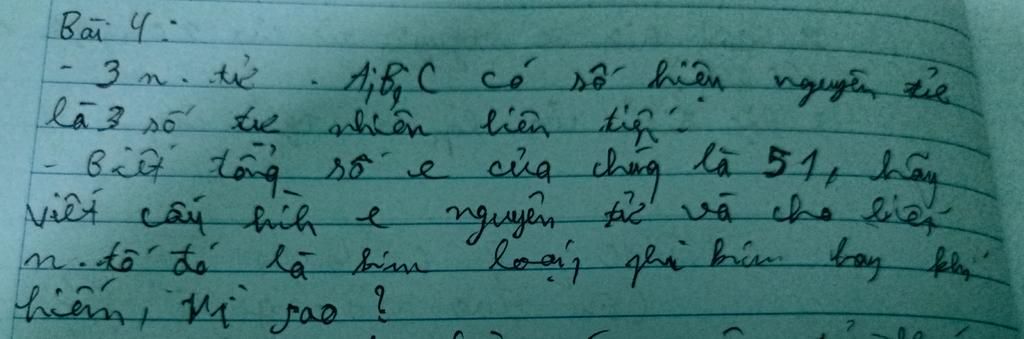 Bài 4:
- 3 n. tử. A, B, C có số hiệu nguyên tử
là 3 số tự nhiên liên tiếp.
- Biết tổng số e của chúng là 51, hãy
viết cấu hình e nguyên tử và cho biết
n. tố đó là kim loại, phi kim hay khí
hiếm, Vì sao?